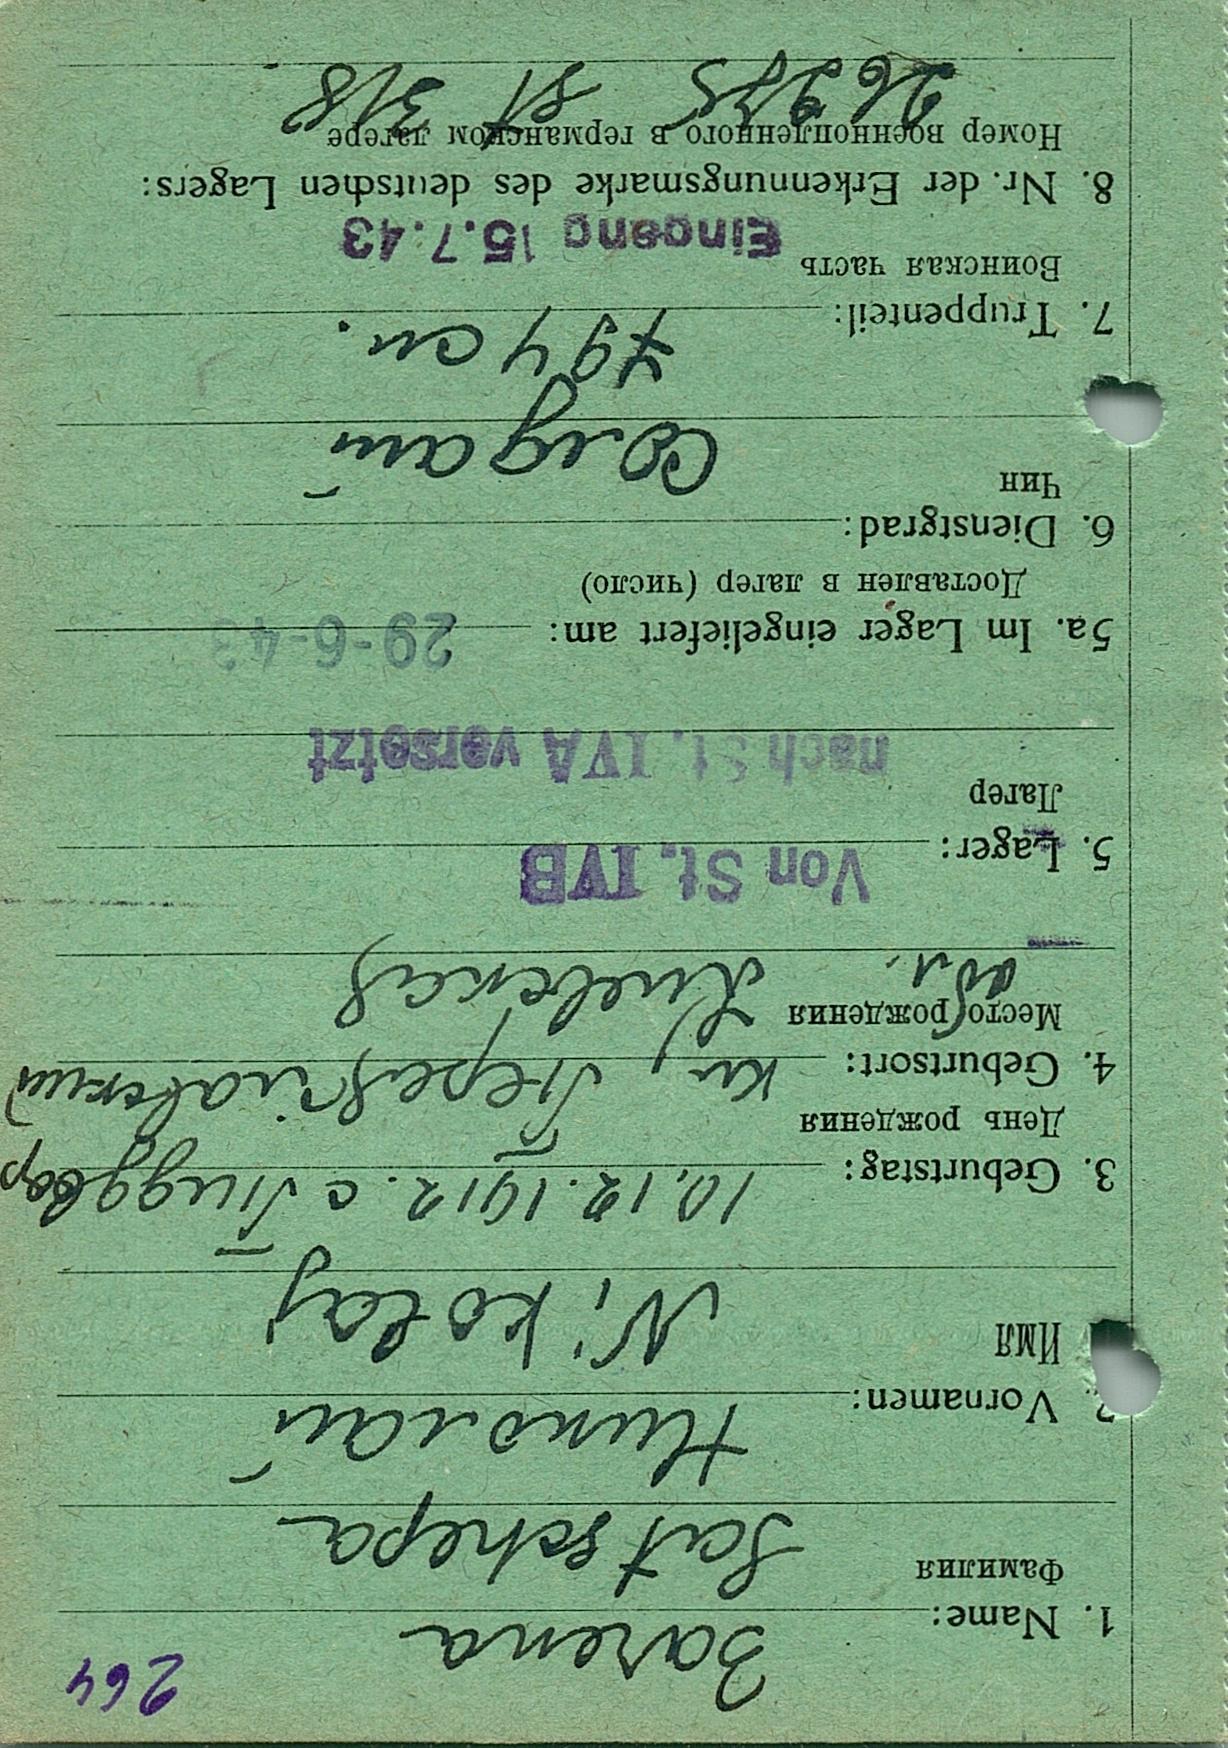 264
Зачепа
1. Name:
Фамилия
Satschepa
Николай
2. Vornamen:
Имя
Nikolaj
10.12.1912. с
3. Geburtstag:
День рождения
4. Geburtsort:
Место рождения
Киевская
обл.
Von St. IVB
5. Lager:
Лагер
nach St. IVA versetzt
5a. Im Lager eingeliefert am: 29-6-43
Доставлен в лагер (число)
6. Dienstgrad:
Чин
Солдат
794 сп.
7. Truppenteil:
Воинская часть
Eingang 15.7.43
8. Nr. der Erkennungsmarke des deutschen Lagers:
Номер военнопленного в германском лагере
26975 St 318